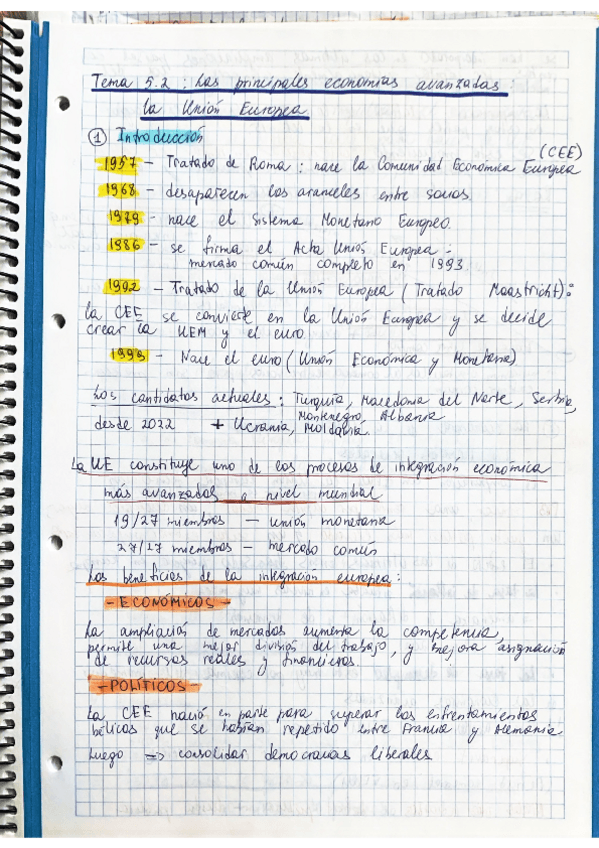 Tema 5.2 : Las principales economías avanzadas :
la Unión Europea
① Introducción
(CEE)
1957 – Tratado de Roma : nace la Comunidad Económica Europea
1968 – desaparecen los aranceles entre socios.
1979 – nace el Sistema Monetario Europeo.
1986 – se firma el Acta Unión Europea :
mercado común completo en 1993
1992 – Tratado de la Unión Europea ( Tratado Maastricht) :
la CEE se convierte en la Unión Europea y se decide
crear la UEM y el euro.
1999 – Nace el euro ( Unión Económica y Monetaria)
Los candidatos actuales : Turquía, Macedonia del Norte, Serbia,
Montenegro, Albania
desde 2022 + Ucrania, Moldavia.
La UE constituye uno de los procesos de integración económica
más avanzados a nivel mundial
19/27 miembros – unión monetaria
27/27 miembros – mercado común
Los beneficios de la integración europea :
– ECONÓMICOS –
La ampliación de mercados aumenta la competencia,
permite una mejor división del trabajo, y mejora asignación
de recursos reales y financieros.
– POLÍTICOS –
La CEE nació en parte para superar los enfrentamientos
bélicos que se habían repetido entre Francia y Alemania
Luego => consolidar democracias liberales